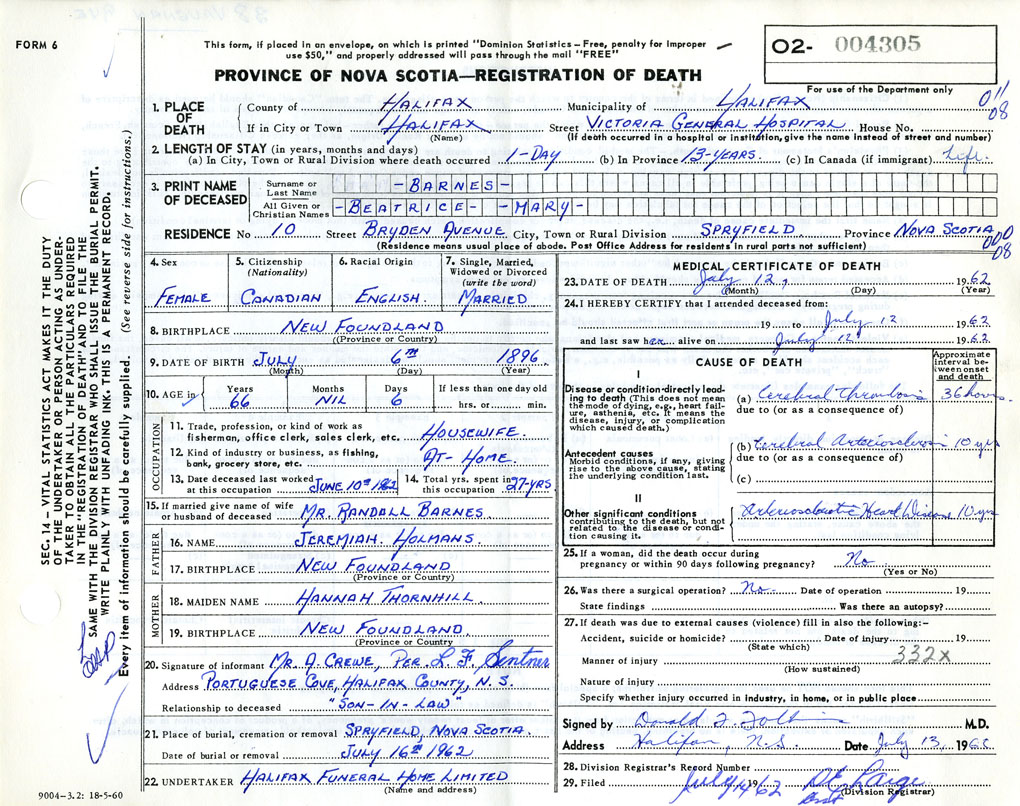 FORM 6
This form, if placed in an envelope, on which is printed "Dominion Statistics – Free, penalty for improper
use $50," and properly addressed will pass through the mail "FREE"
02- 004305
For use of the Department only
PROVINCE OF NOVA SCOTIA—REGISTRATION OF DEATH
1. PLACE OF DEATH
County of HALIFAX Municipality of HALIFAX
If in City or Town HALIFAX (Name) Street VICTORIA GENERAL HOSPITAL House No.
(If death occurred in a hospital or institution, give the name instead of street and number)
011
08
2. LENGTH OF STAY (in years, months and days)
(a) In City, Town or Rural Division where death occurred 1-DAY (b) In Province 13-YEARS. (c) In Canada (if immigrant) Life.
3. PRINT NAME OF DECEASED
Surname or Last Name -BARNES-
All Given or Christian Names -BEATRICE- -MARY-
RESIDENCE No 10 Street BRYDEN AVENUE City, Town or Rural Division SPRYFIELD Province NOVA SCOTIA
(Residence means usual place of abode. Post Office Address for residents in rural parts not sufficient)
000
08
4. Sex FEMALE
5. Citizenship (Nationality) CANADIAN
6. Racial Origin ENGLISH
7. Single, Married, Widowed or Divorced (write the word) MARRIED
8. BIRTHPLACE NEW FOUNDLAND
(Province or Country)
9. DATE OF BIRTH JULY 6TH 1896
(Month) (Day) (Year)
10. AGE in Years 66 Months NIL Days 6 If less than one day old hrs. or min.
OCCUPATION
11. Trade, profession, or kind of work as fisherman, office clerk, sales clerk, etc. HOUSEWIFE.
12. Kind of industry or business, as fishing, bank, grocery store, etc. AT-HOME.
13. Date deceased last worked at this occupation JUNE 10TH 1962
14. Total yrs. spent in this occupation 27-YRS
15. If married give name of wife or husband of deceased MR. RANDALL BARNES
FATHER
16. NAME JEREMIAH. HOLMANS.
17. BIRTHPLACE NEW FOUNDLAND
(Province or Country)
MOTHER
18. MAIDEN NAME HANNAH THORNHILL.
19. BIRTHPLACE NEW FOUNDLAND.
(Province or Country
20. Signature of informant MR. J. CREWE, PER. L. F. Sentner
Address PORTUGUESE COVE, HALIFAX COUNTY, N.S.
Relationship to deceased "SON-IN-LAW"
21. Place of burial, cremation or removal SPRYFIELD, NOVA SCOTIA.
Date of burial or removal JULY 16TH 1962
22. UNDERTAKER HALIFAX FUNERAL HOME LIMITED
(Name and address)
MEDICAL CERTIFICATE OF DEATH
23. DATE OF DEATH July 12, 1962
(Month) (Day) (Year)
24. I HEREBY CERTIFY that I attended deceased from:
19 to July 12 1962
and last saw her alive on July 12 1962
CAUSE OF DEATH
Approximate interval between onset and death
I
Disease or condition directly leading to death (This does not mean the mode of dying, e.g., heart failure, asthenia, etc. It means the disease, injury, or complication which caused death.)
(a) Cerebral Thrombosis 36 hours.
due to (or as a consequence of)
Antecedent causes
Morbid conditions, if any, giving rise to the above cause, stating the underlying condition last.
(b) Cerebral Arteriosclerosis 10 yrs
due to (or as a consequence of)
(c)
II
Other significant conditions contributing to the death, but not related to the disease or condition causing it.
Arteriosclerotic Heart Disease 10 yrs
25. If a woman, did the death occur during pregnancy or within 90 days following pregnancy? No
(Yes or No)
26. Was there a surgical operation? No- Date of operation 19
State findings Was there an autopsy?
27. If death was due to external causes (violence) fill in also the following:-
Accident, suicide or homicide? Date of injury 19
(State which)
Manner of injury 332X
(How sustained)
Nature of injury
Specify whether injury occurred in industry, in home, or in public place
Signed by Donald M.D.
Address Halifax, N.S Date July 13, 196
28. Division Registrar's Record Number
29. Filed July 14 1962
(Division Registrar)
SEC. 14 – VITAL STATISTICS ACT MAKES IT THE DUTY
OF THE UNDERTAKER OR PERSON ACTING AS UNDER-
TAKER TO OBTAIN ALL THE PARTICULARS REQUIRED
IN THE "REGISTRATION OF DEATH" AND TO FILE THE
SAME WITH THE DIVISION REGISTRAR WHO SHALL ISSUE THE BURIAL PERMIT.
WRITE PLAINLY WITH UNFADING INK. THIS IS A PERMANENT RECORD.
Every item of information should be carefully supplied. (See reverse side for instructions.)
9004-3.2: 18-5-60